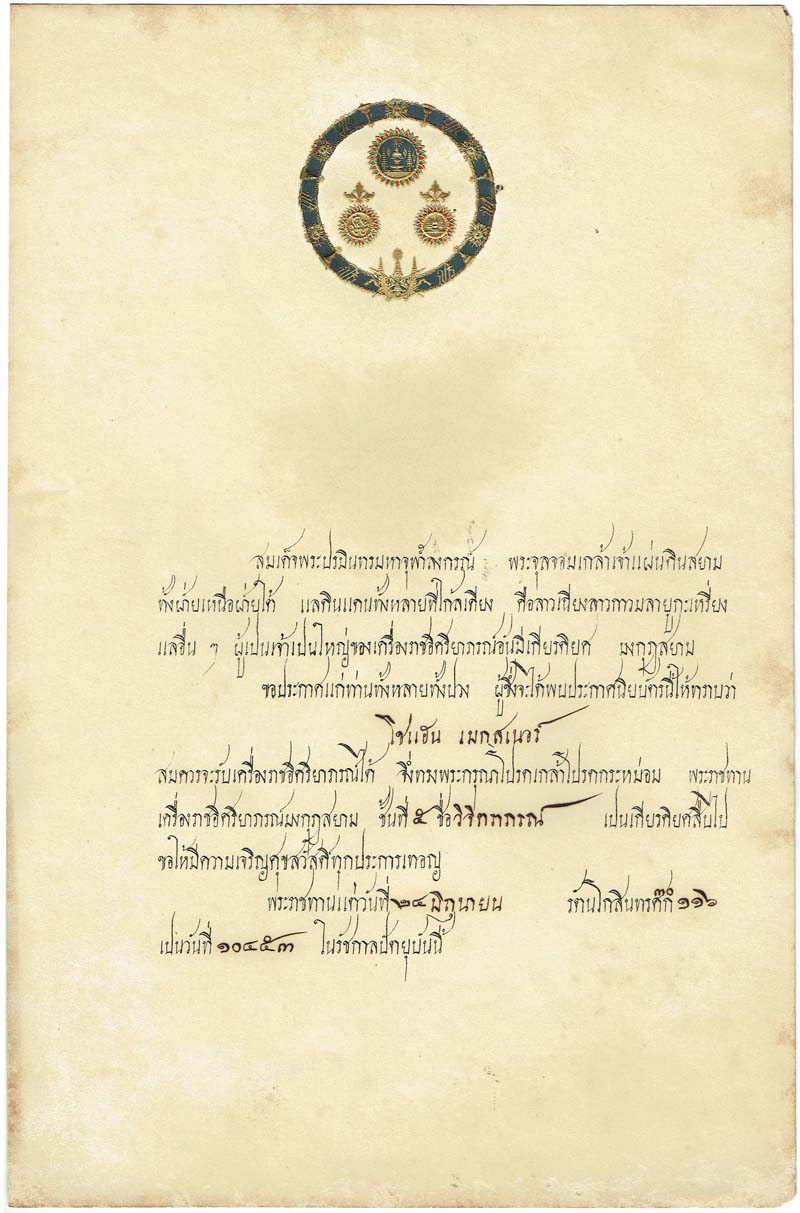 สมเด็จพระปรมินทรมหาจุฬาลงกรณ์ พระจุลจอมเกล้าเจ้าแผ่นดินสยาม
ทั้งฝ่ายเหนือฝ่ายใต้ แลดินแดนทั้งหลายที่ใกล้เคียง คือลาวเฉียงลาวกาวมลายูกะเหรี่ยง
แลอื่น ๆ ผู้เป็นเจ้าเป็นใหญ่ของเครื่องราชอิศริยาภรณ์อันมีเกียรติยศ มงกุฎสยาม
ขอประกาศแก่ท่านทั้งหลายทั้งปวง ผู้ซึ่งจะได้พบประกาศนิยบัตรนี้ให้ทราบว่า
โยฮัน เมกสเนอร์
สมควรจะรับเครื่องราชอิศริยาภรณ์ได้ จึ่งทรงพระกรุณาโปรดเกล้าโปรดกระหม่อม พระราชทาน
เครื่องราชอิศริยาภรณ์มงกุฎสยาม ชั้นที่ ๕ ชื่อวิจิตราภรณ์ เป็นเกียรติยศสืบไป
ขอให้มีความเจริญศุขสวัสดิทุกประการเทอญ
พระราชทานแต่วันที่ ๒๔ มิถุนายน รัตนโกสินทรศก๊ ๑๑๖
เปนวันที่ ๑๐๔๕๓ ในรัชกาลปัตยุบันนี้